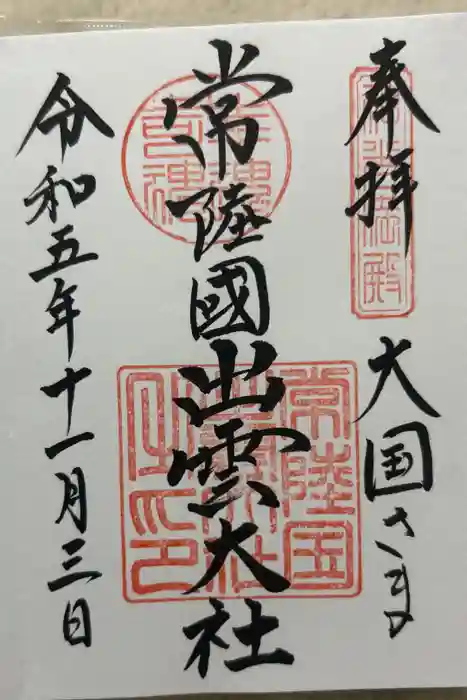 奉拝
大国さま
常陸國出雲大社
令和五年十一月三日
常陸国
出雲大社
之印